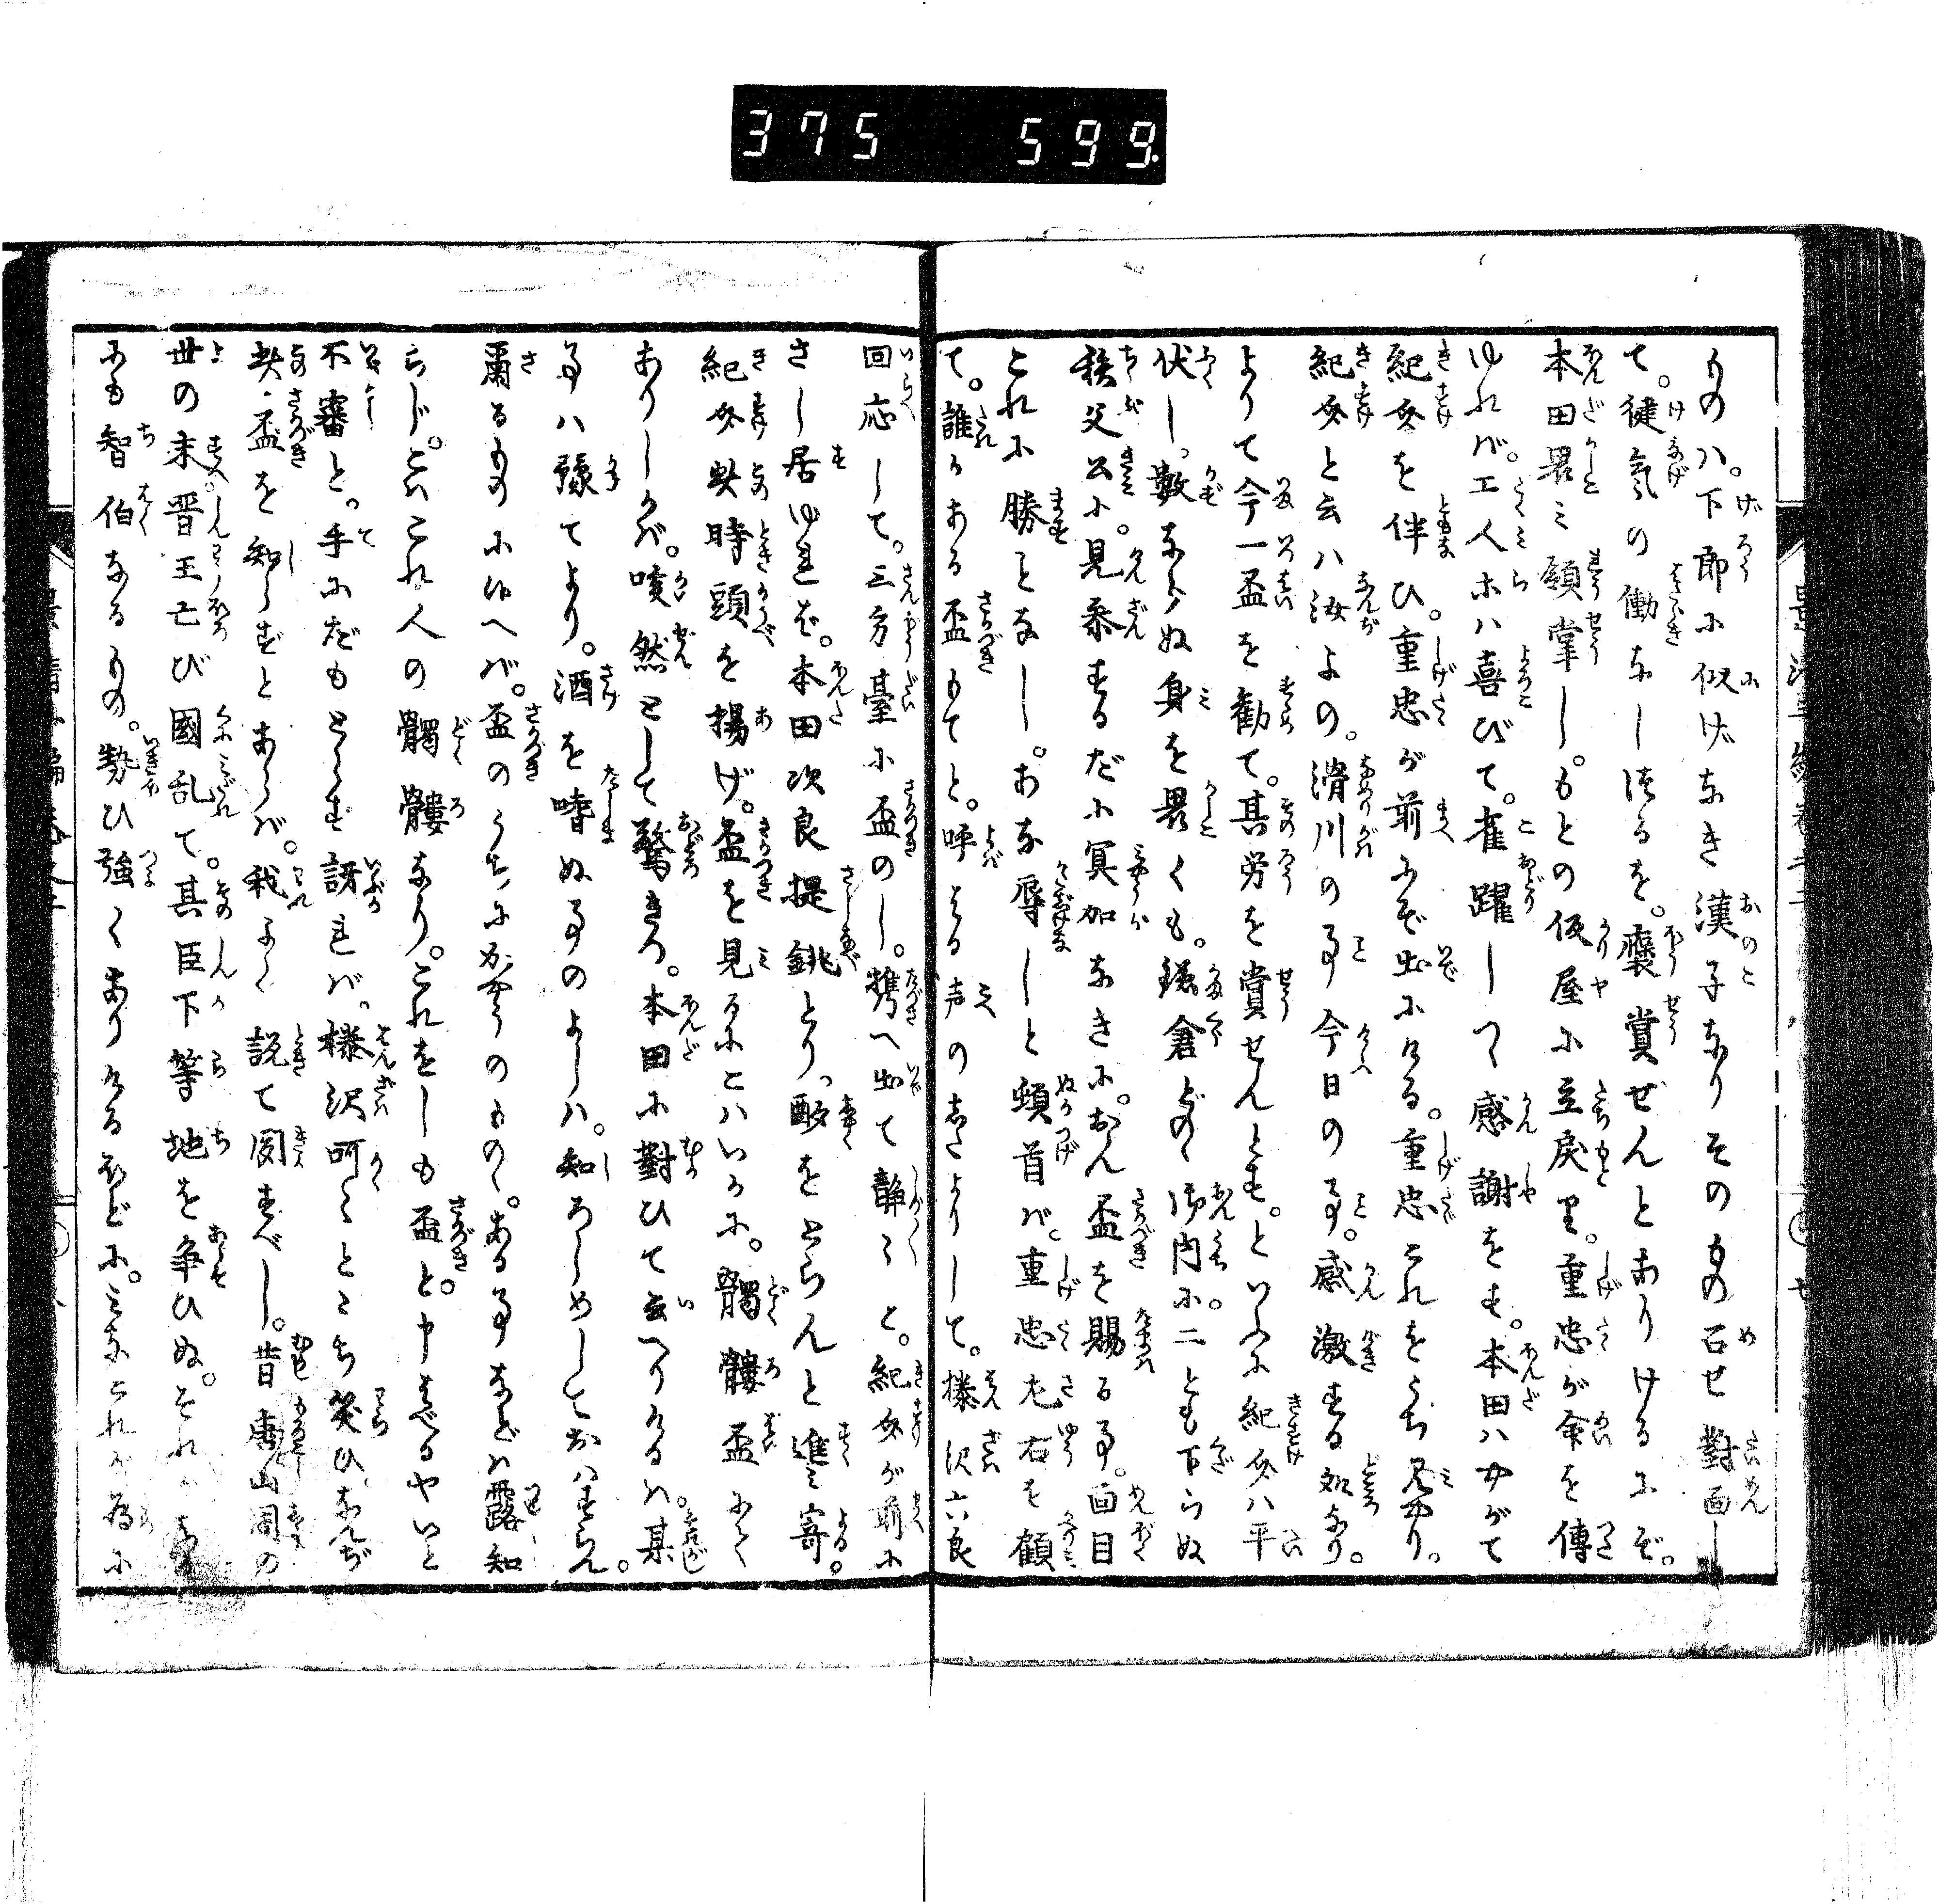 375 599
ものハ。下郎に似げなき漢子なりそのもの召せ對面し
て。健気の働なしつるを。褒賞せんとありけるにぞ。
本田畏ミ領掌し。もとの仮屋に立戻り。重忠が命を傳
ゆれバ。工人ホハ喜びて。雀躍しつゝ感謝をす。本田ハやがて
紀介を伴ひ。重忠が前にぞ出にける。重忠これをうち見やり。
紀介と云ハ汝よの。滑川の事今日の事。感激する処なり。
よりて今一盃を勸て。其労を賞せんとす。といふに紀介ハ平
伏し。数ならぬ身を畏くも。鎌倉どのゝ御内に。二とも下らぬ
秩父公に。見参するだに冥加なきに。おん盃を賜る事。面目
これに勝となし。おな辱しと頓首バ。重忠左右を顧
て。誰かある盃もてと。呼はる声の下よりして。榛沢六良
回応して。三方臺に盃のし。携へ出て静々と。紀介が前に
さし居ゆれば。本田次良提銚とり。酌をとらんと進ミ寄る。
紀介此時頭を揚げ。盃を見るにこハいかに。髑髏盃にて
ありしかバ。喟然として驚きつ。本田に對ひて云へりけるハ。某
事ハ豫てより。酒を嗜ぬ事のよしハ。知ろしめしておハすらん。
爾るものに候へバ。盃のうちにかやうのものゝ。ある事などハ露知
らじ。こハこれ人の髑髏なり。これをしも盃と。申すべるやいと
不審と。手にだもとらず訝れバ。榛沢呵々とうち笑ひ。なんぢ
此盃を知らずとあらバ。我よく説て聞すべし。昔唐山周の
世の末晋王亡び國乱て。其臣下等地を争ひぬ。それが
にも智伯なるもの。勢ひ強くありけるほどに。ミなこれが為に